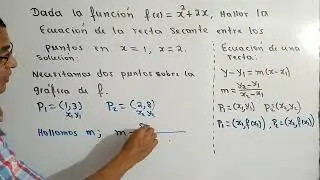 Dada la función f(x) = x² + 2x, Hallar la
Ecuación de la recta secante entre los
puntos en x = 1, x = 2.
Solución:
Necesitamos dos puntos sobre la
gráfica de f.
P₁ = (1,3) P₂ = (2,8)
x₁ y₁ x₂ y₂
Hallamos m; m =
Ecuación de una
recta:
y - y₁ = m(x - x₁)
m = y₂ - y₁
x₂ - x₁
P₁ = (x₁,y₁) P₂ = (x₂,y₂)
P₁ = (x₁,f(x₁)), P₂ = (x₂,f(x₂))